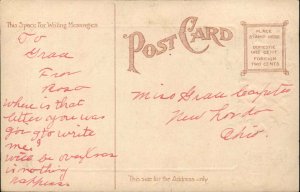 This Space For Writing Messages
To
Grace
From
Rosa
where is that
letter you was
going to write
me?
will be over Xmas
if nothing
happens
POST CARD
PLACE
STAMP HERE
DOMESTIC
ONE CENT
FOREIGN
TWO CENTS
Miss Grace Carpenter
New London
Ohio.
This side for the Address only